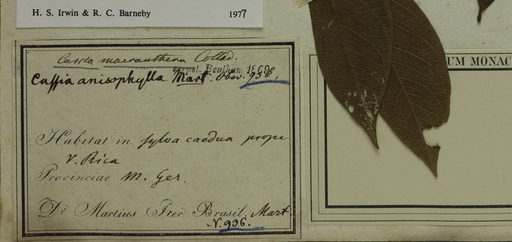 H. S. Irwin & R. C. Barneby 1977
Cassia macranthera Collad.
Benth. 1869
Cassia anisophylla Mart. Obs. 936,
Habitat in sylva caedua prope
V. Rica
Provinciae M. Ger.
Dr Martius Iter Brasil. Mart
N. 936.
UM MONAC